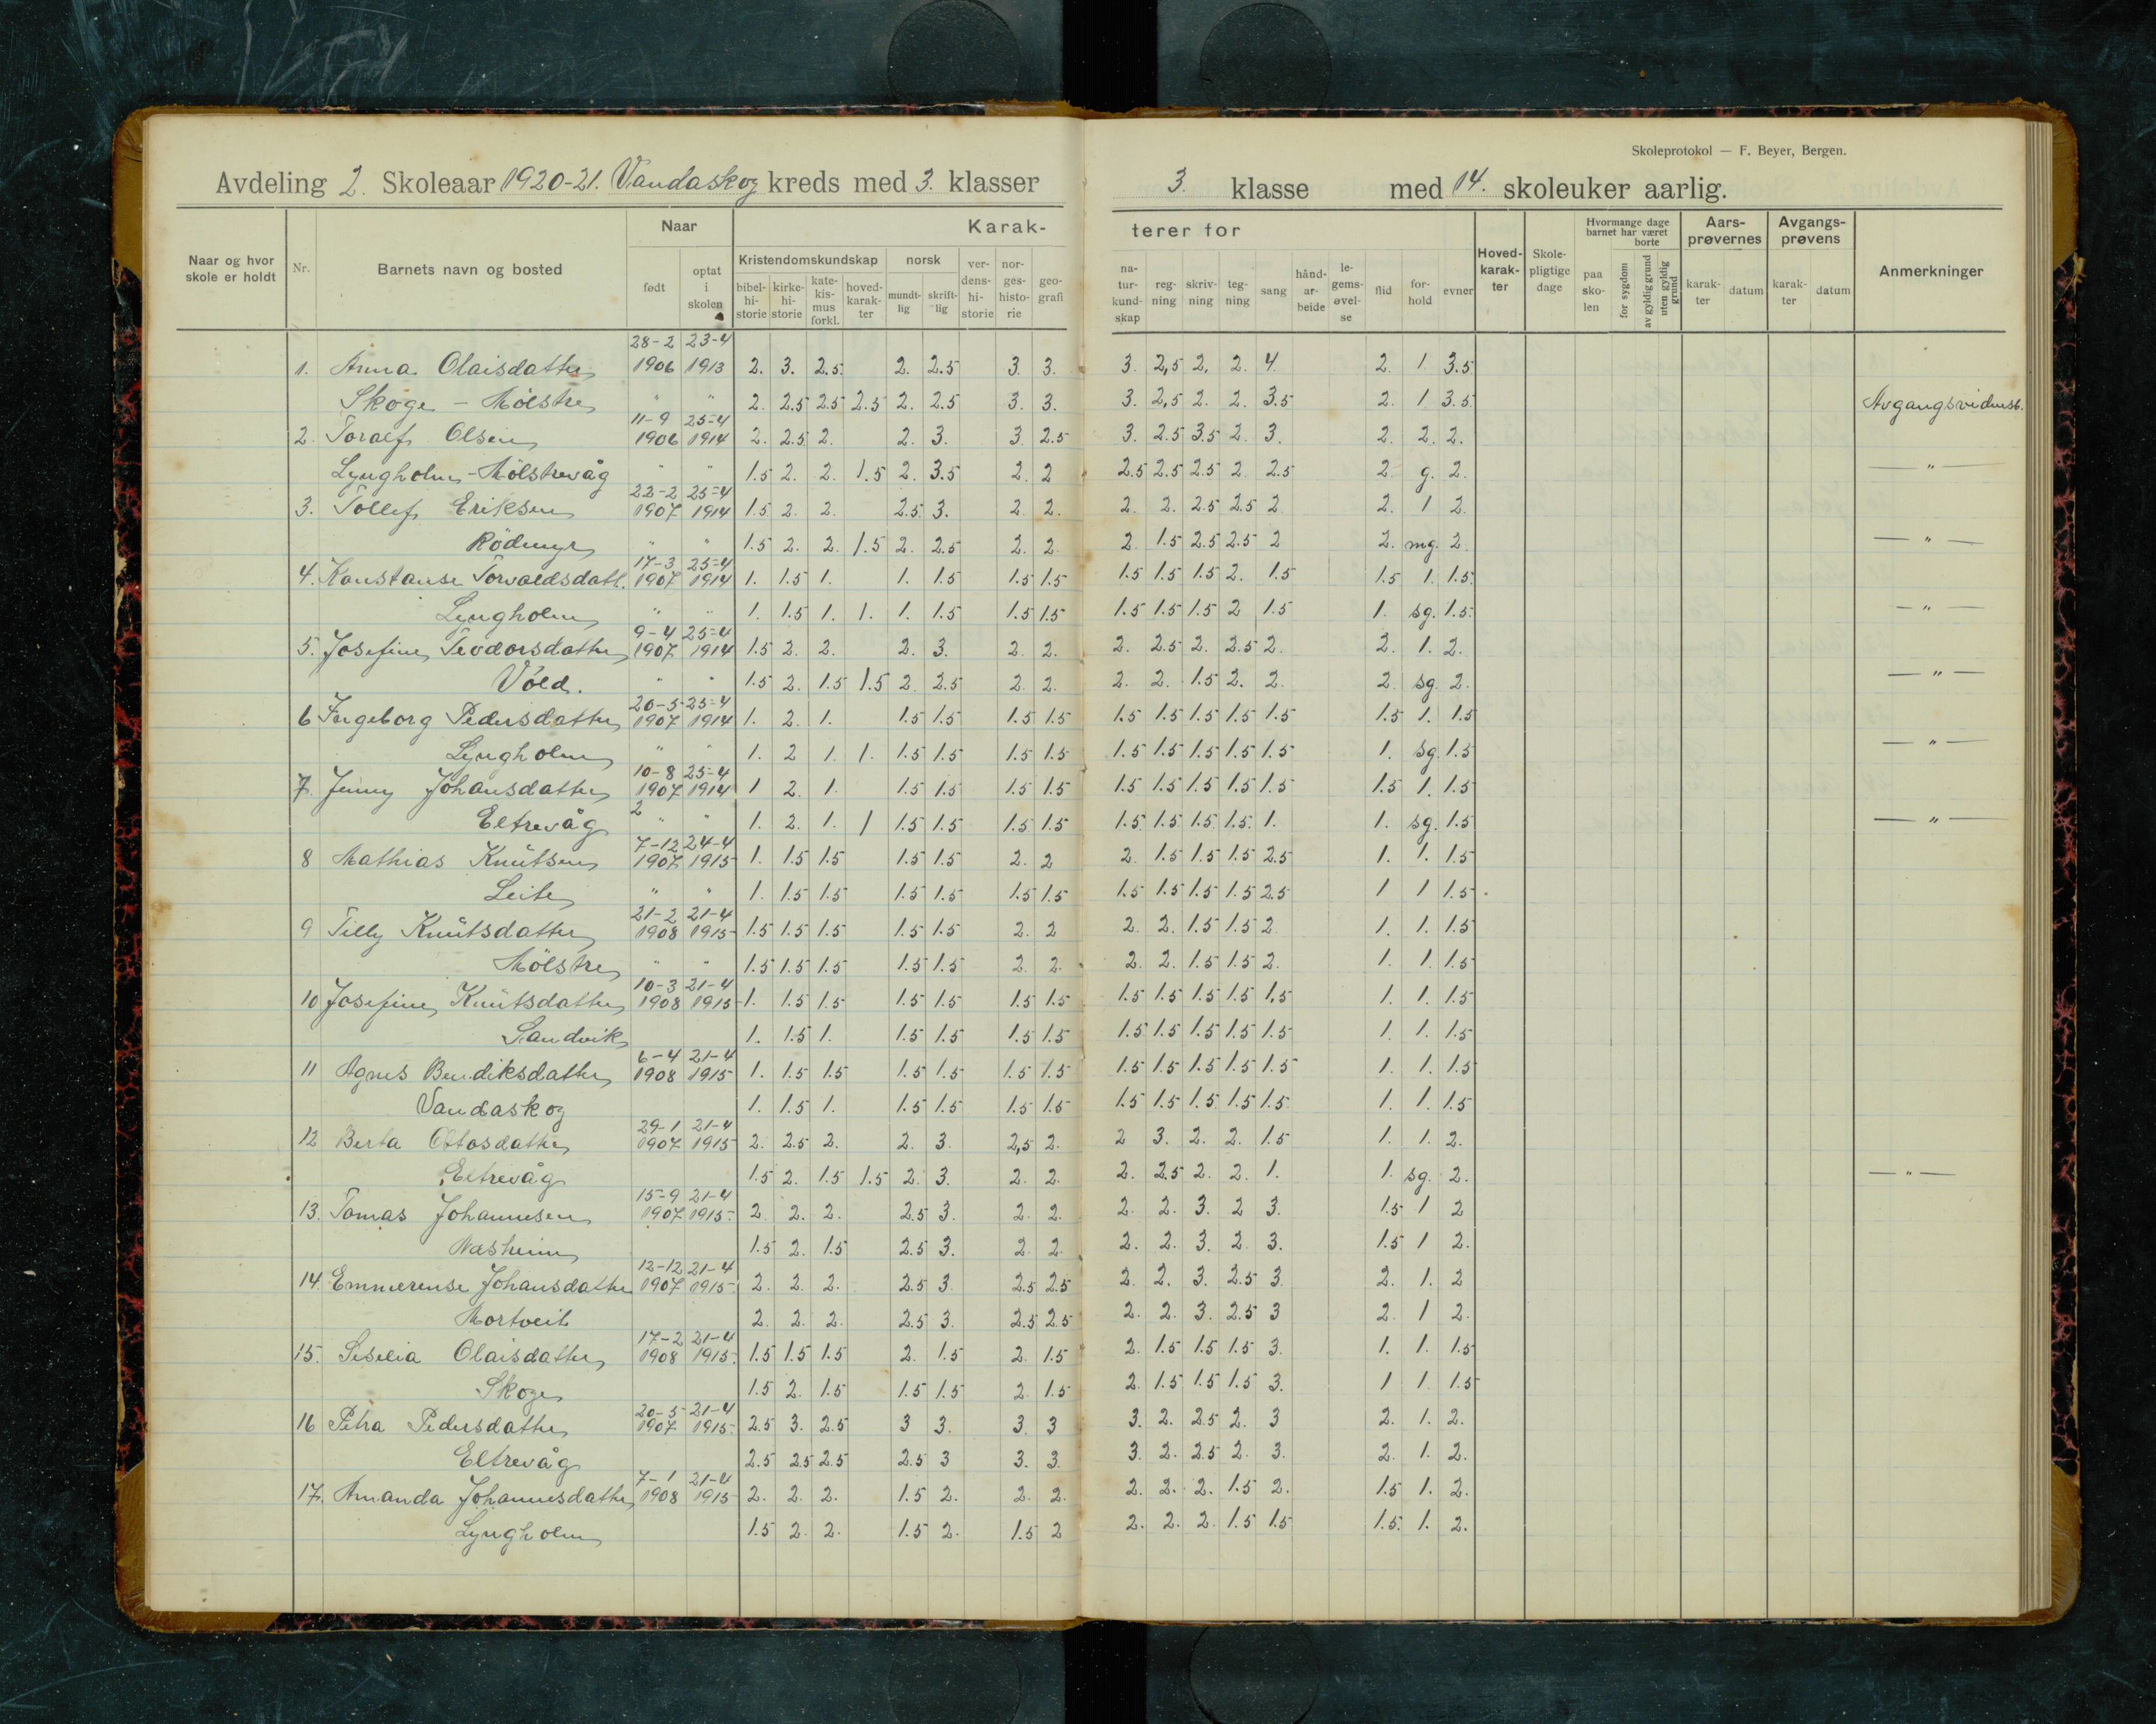 Skoleprotokol — F. Beyer, Bergen.
Avdeling 2. Skoleaar 1920-21. Vandaskog kreds med 3. klasser 3. klasse med 14. skoleuker aarlig.
Naar og hvor skole er holdt Nr. Barnets navn og bosted Naar født optat i skolen Karakterer for Kristendomskundskap bibelhistorie kirkehistorie katekismus forkl. hovedkarakter norsk mundtlig skriftlig verdenshistorie norgeshistorie geografi naturkundskap regning skrivning tegning sang håndarbeide legemsøvelse flid forhold evner Hovedkarakter Skolepligtige dage Hvormange dage barnet har været borte paa skolen for sygdom av gyldig grund uten gyldig grund Aarsprøvernes karakter datum Avgangsprøvens karakter datum Anmerkninger
28-2 23-4
1. Anna Olaisdatter 1906 1913 2. 3. 2.5. 2. 2.5 3. 3. 3. 2,5 2. 2. 4. 2. 1 3.5
Skoge - Mölstre " " 2. 2.5 2.5 2.5 2. 2.5 3. 3. 3. 2,5 2. 2. 3.5 2. 1 3.5 Avgangsvidnesb.
11-9 25-4
2. Toralf Olsen 1906 1914 2. 2.5 2. 2. 3. 3. 2.5 3. 2.5 3.5 2. 3. 2. 2. 2.
Lyngholm - Mölstrevåg " " 1.5 2. 2. 1.5 2. 3.5 2. 2 2.5 2.5 2.5 2 2.5 2 g. 2. "
22-2 25-4
3. Tollef Eriksen 1907 1914 1.5 2. 2. 2.5 3. 2. 2. 2. 2. 2.5 2.5 2 2. 1 2.
Rödmyr " " 1.5 2. 2. 1.5 2. 2.5 2. 2. 2. 1.5 2.5 2.5 2 2. mg. 2. "
17-3 25-4
4. Konstanse Torvaldsdatt. 1907 1914 1. 1.5 1. 1. 1.5 1.5 1.5 1.5 1.5 1.5 2. 1.5 1.5 1. 1.5
Lyngholm " " 1. 1.5 1. 1. 1. 1.5 1.5 1.5 1.5 1.5 1.5 2 1.5 1. sg. 1.5 "
9-4 25-4
5. Josefine Teodorsdatter 1907 1914 1.5 2. 2. 2. 3. 2. 2. 2. 2.5 2. 2.5 2. 2. 1. 2.
Vold. " " 1.5 2. 1.5 1.5 2 2.5 2. 2. 2. 2. 1.5 2. 2. 2. sg. 2. "
20-5 25-4
6 Ingeborg Pedersdatter 1907 1914 1. 2. 1. 1.5 1.5 1.5 1.5 1.5 1.5 1.5 1.5 1.5 1.5 1. 1.5
Lyngholm " " 1. 2 1. 1. 1.5 1.5 1.5 1.5 1.5 1.5 1.5 1.5 1.5 1. sg. 1.5 "
10-8 25-4
7. Jenny Johansdatter 1907 1914 1 2. 1. 1.5 1.5 1.5 1.5 1.5 1.5 1.5 1.5 1.5 1.5 1. 1.5
Eltrevåg 2 " " 1. 2. 1. 1 1.5 1.5 1.5 1.5 1.5 1.5 1.5 1.5 1. 1. sg. 1.5 "
7-12 24-4
8 Mathias Knutsen 1907 1915 1. 1.5 1.5 1.5 1.5 2. 2 2. 1.5 1.5 1.5 2.5 1. 1. 1.5
Leite " " 1. 1.5 1.5 1.5 1.5 1.5 1.5 1.5 1.5 1.5 1.5 2.5 1 1 1.5
21-2 21-4
9 Tilly Knutsdatter 1908 1915 1.5 1.5 1.5 1.5 1.5 2. 2 2. 2. 1.5 1.5 2 1. 1. 1.5
Mölstre " " 1.5 1.5 1.5 1.5 1.5 2. 2. 2. 2. 1.5 1.5 2. 1. 1. 1.5
10-3 21-4
10 Josefine Knutsdatter 1908 1915 1. 1.5 1.5 1.5 1.5 1.5 1.5 1.5 1.5 1.5 1.5 1,5 1. 1. 1.5
Sandvik 1. 1.5 1. 1.5 1.5 1.5 1.5 1.5 1.5 1.5 1.5 1.5 1. 1. 1.5
6-4 21-4
11 Agnes Bendiksdatter 1908 1915 1. 1.5 1.5 1.5 1.5 1.5 1.5 1.5 1.5 1.5 1.5 1.5 1. 1. 1.5
Vandaskog 1. 1.5 1. 1.5 1.5 1.5 1.5 1.5 1.5 1.5 1.5 1.5 1. 1. 1.5
29-1 21-4
12 Berta Ottosdatter 1907 1915 2. 2.5 2. 2. 3. 2,5 2. 2 3. 2. 2. 1.5 1. 1. 2.
Eltrevåg 1.5 2. 1.5 1.5 2. 3. 2. 2. 2. 2.5 2. 2. 1. 1. sg. 2. "
15-9 21-4
13. Tomas Johannesen 1907 1915 2. 2. 2. 2.5 3. 2. 2. 2. 2. 3. 2 3. 1.5 1 2
Næsheim 1.5 2. 1.5 2.5 3. 2. 2. 2. 2. 3. 2. 3. 1.5 1 2.
12-12 21-4
14. Emmerense Johansdatter 1907 1915 2. 2. 2. 2.5 3. 2.5 2.5 2. 2. 3. 2.5 3. 2. 1. 2
Mortveit 2. 2. 2. 2.5 3. 2.5 2.5 2. 2. 3. 2.5 3 2. 1 2.
17-2 21-4
15. Siselia Olaisdatter 1908 1915 1.5 1.5 1.5 2. 1.5 2. 1.5 2. 1.5 1.5 1.5 3. 1. 1. 1.5
Skoge 1.5 2. 1.5 1.5 1.5 2. 1.5 2. 1.5 1.5 1.5 3. 1 1. 1.5
20-5 21-4
16 Petra Pedersdatter 1907 1915 2.5 3. 2.5 3 3. 3. 3 3. 2. 2.5 2. 3 2. 1. 2.
Eltrevåg 2.5 2.5 2.5 2.5 3 3. 3. 3. 2. 2.5 2. 3. 2. 1. 2.
7-1 21-4
17. Amanda Johannesdatter 1908 1915 2. 2. 2. 1.5 2. 2. 2. 2. 2. 2. 1.5 2. 1.5 1. 2.
Lyngholm 1.5 2. 2. 1.5 2. 1.5 2 2. 2. 2. 1.5 1.5 1.5. 1. 2.